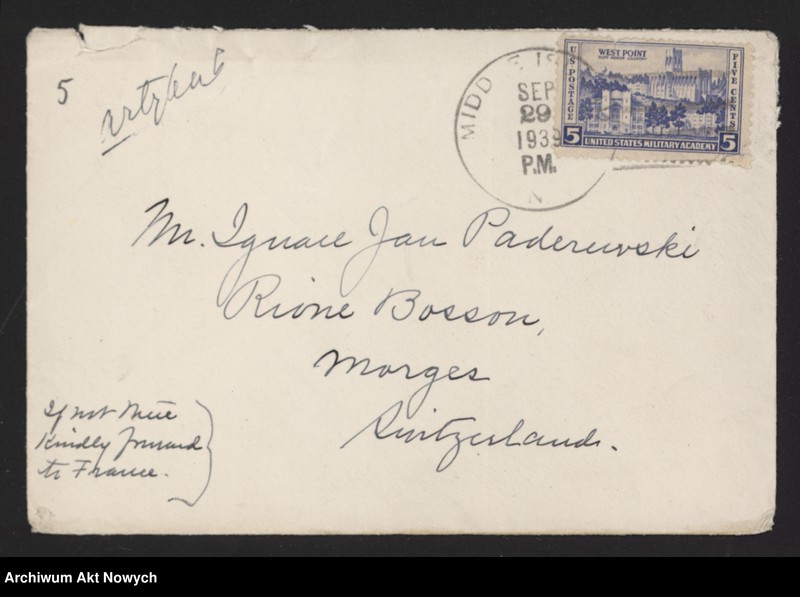 5
artykuł
MIDD E IS
SEP
29
1939
P.M.
N
U.S. POSTAGE
WEST POINT
FIVE CENTS
5 UNITED STATES MILITARY ACADEMY 5
Mr. Ignace Jan Paderewski
Rione Bosson,
Morges
Switzerland.
If not there
Kindly forward
to France.
Archiwum Akt Nowych